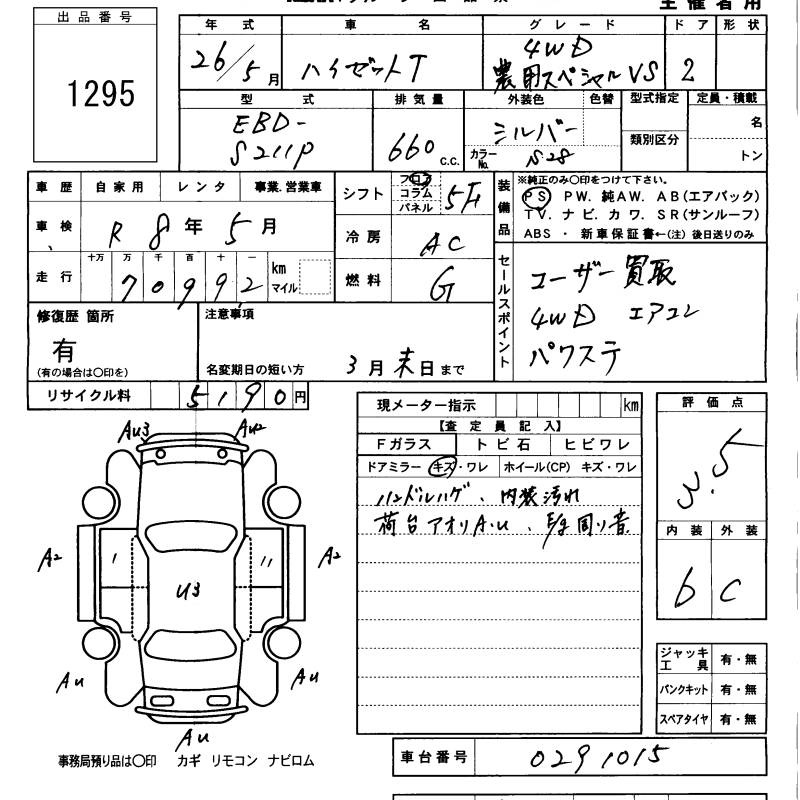 主催者用
出品番号
1295
年式 車名 グレード ドア 形状
26/5月 ハイゼットT 4WD
農用スペシャルVS 2
型式 排気量 外装色 色替 型式指定 定員・積載
EBD-
S211P 660 c.c. シルバー 類別区分 名
カラーNo. S28 トン
車歴 自家用 レンタ 事業.営業車
シフト フロア コラム パネル 5F
装備品 ※純正のみ〇印をつけて下さい。
PS PW. 純AW. AB(エアバック)
TV. ナビ. カワ. SR(サンルーフ)
ABS ・ 新車保証書←(注) 後日送りのみ
車検 R8年5月
冷房 AC
走行 十万 万 千 百 十 一
70992 km マイル
燃料 G
セールスポイント
ユーザー買取
4WD エアコン
パワステ
修復歴 箇所
有
(有の場合は〇印を)
注意事項
名変期日の短い方 3月末日まで
リサイクル料 5190円
現メーター指示 km
【査定員記入】
Fガラス トビ石 ヒビワレ
ドアミラー キズ・ワレ ホイール(CP) キズ・ワレ
ハンドルハゲ、内装汚れ
荷台アオリA.u、 周り音
評価点
3.5
内装 外装
b C
Au3 Au2
A2 A2
U3
Au Au
Au
ジャッキ工具 有・無
パンクキット 有・無
スペアタイヤ 有・無
事務局預り品は〇印 カギ リモコン ナビロム
車台番号 0291015